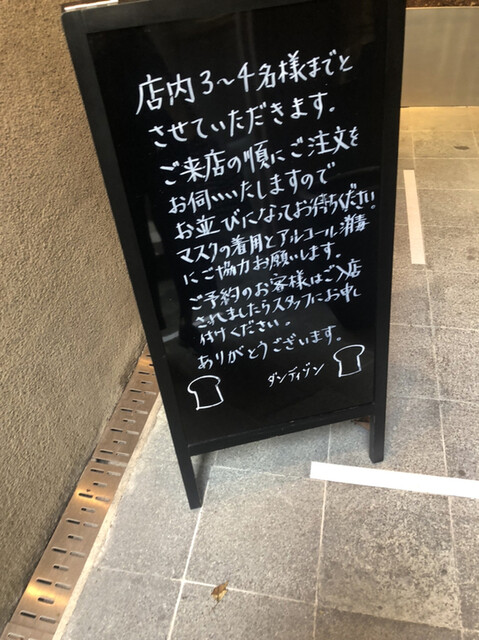 店内3〜4名様までと
させていただきます。
ご来店の順にご注文を
お伺いいたしますので
お並びになってお待ちください。
マスクの着用とアルコール消毒
にご協力お願いします。
ご予約のお客様はご入店
されましたらスタッフにお申し
付けください。
ありがとうございます。
ダンディゾン